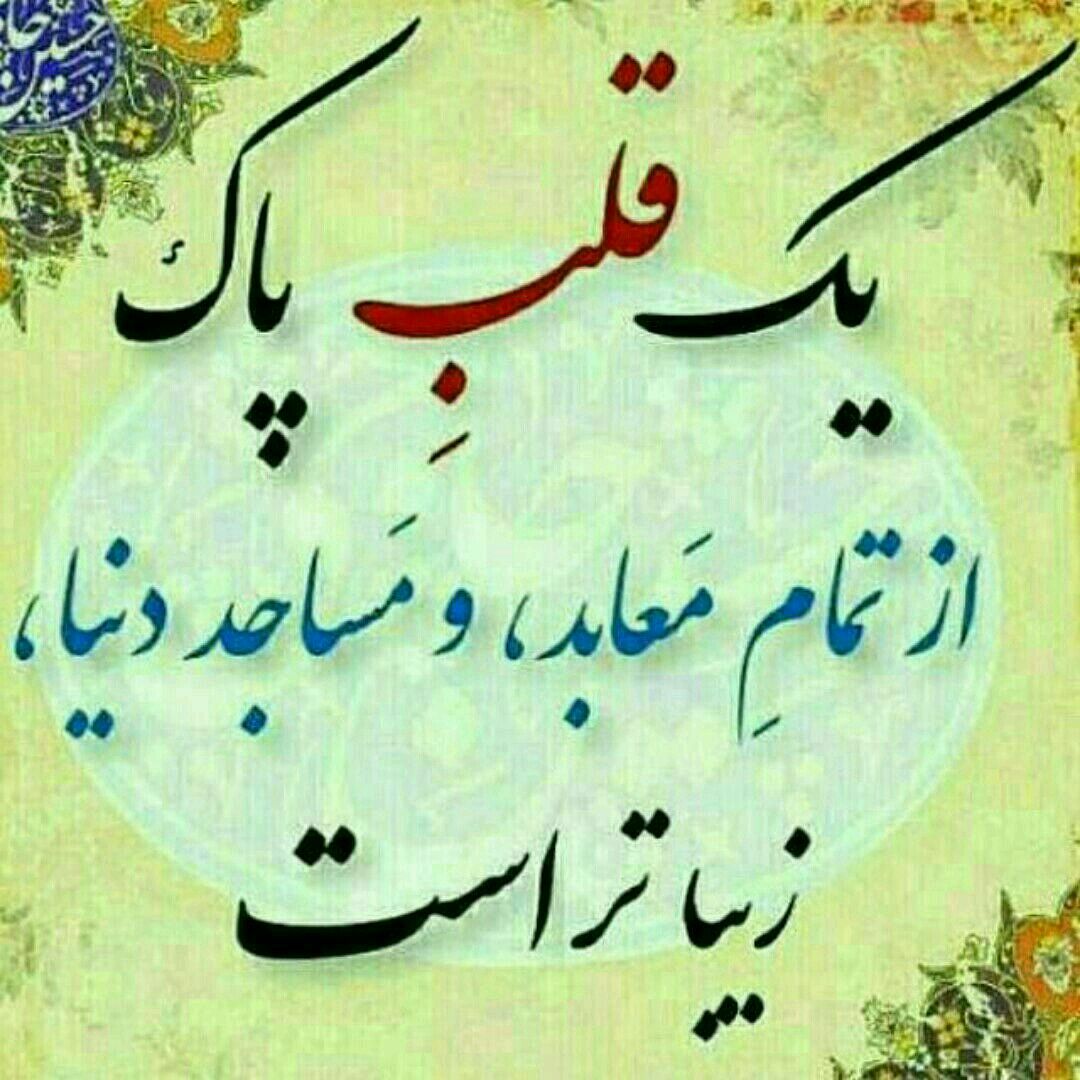 یک قلبِ پاک
از تمامِ مَعابد، و مَساجد دنیا،
زیباتر است